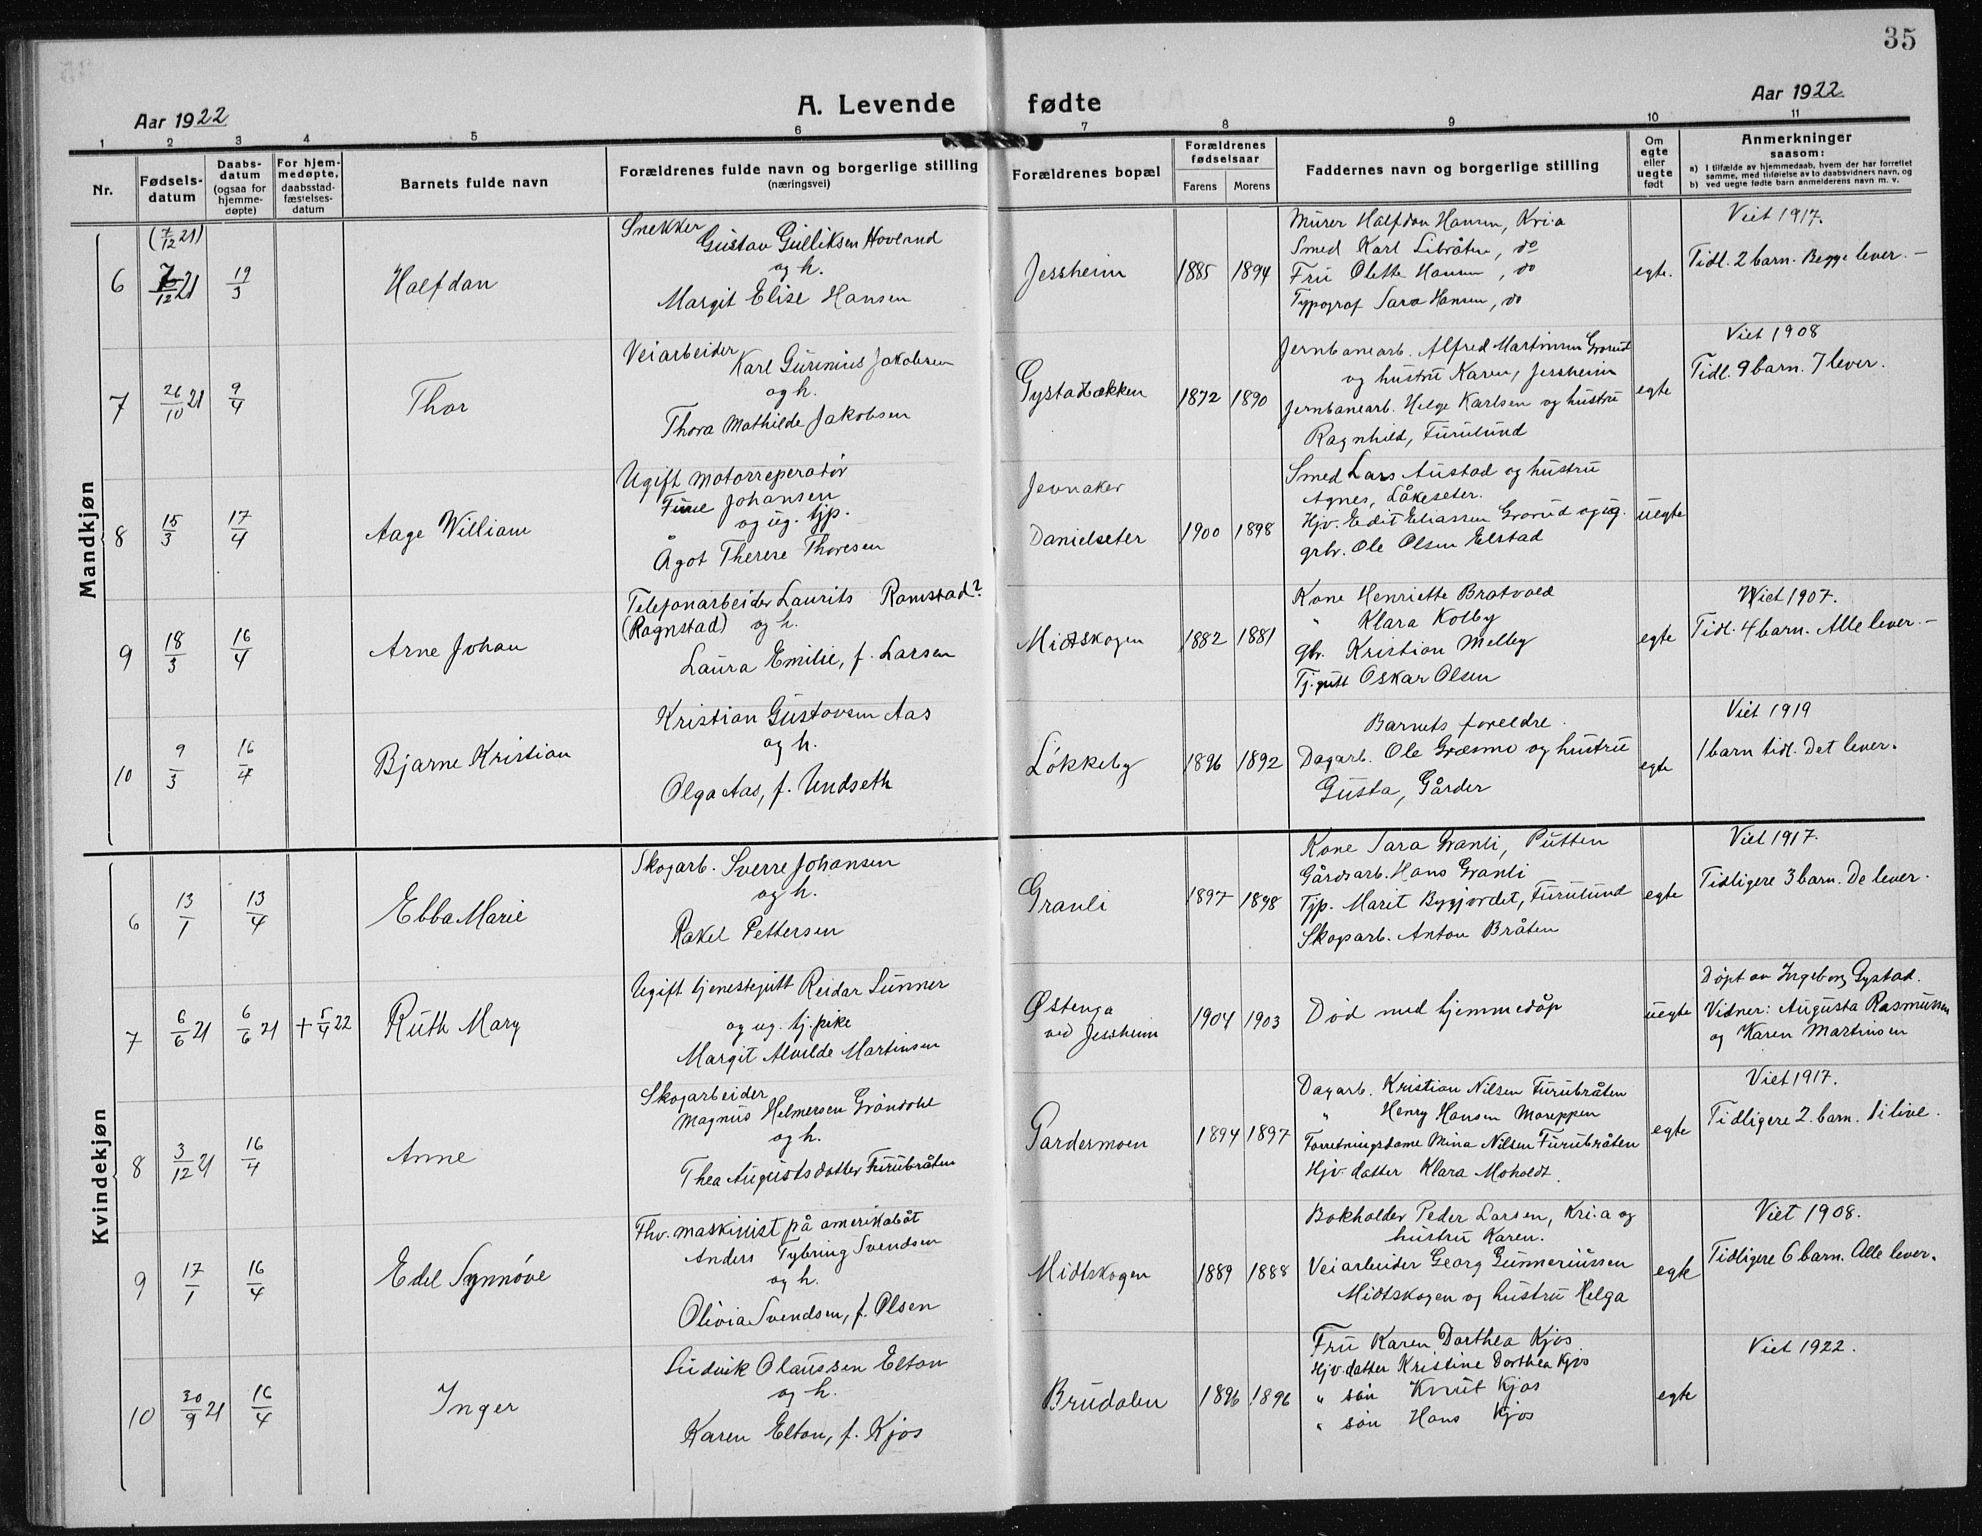 35
Aar 1922
A. Levende fødte
Aar 1922
1 2 3 4 5 6 7 8 9 10 11
Nr.
Fødsels-
datum
Daabs-
datum
(ogsaa for
hjemme-
døpte)
For hjem-
medøpte,
daabsstad-
fæstelses-
datum
Barnets fulde navn
Forældrenes fulde navn og borgerlige stilling
(næringsvei)
Forældrenes bopæl
Forældrenes
fødselsaar
Farens
Morens
Faddernes navn og borgerlige stilling
Om
egte
eller
uegte
født
Anmerkninger
saasom:
a) I tilfælde av hjemmedaab, hvem der har forrettet
samme, med tilføielse av to daabsvidners navn, og
b) ved uegte fødte barn anmelderens navn m. v.
Mandkjøn
6
(7/12 21)
7/12 21
19/3
Halfdan
Snekker
Gustav Gulliksen Hovland
og h.
Margit Elise Hansen
Jessheim
1885
1894
Murer Halfdan Hansen, Kria
Smed Karl Libråten, do
Fru Olette Hansen, do
Typograf Sara Hansen, do
egte.
Viet 1917.
Tidl. 2 barn. Begge lever. –
7
26/10 21
9/4
Thor
Veiarbeider
Karl Gurinius Jakobsen
og h.
Thora Mathilde Jakobsen
Gystadbækken
1872
1890
Jernbanearb. Alfred Martinsen Grorud
og hustru Karen, Jessheim
Jernbanearb. Helge Karlsen og hustru
Ragnhild, Furulund
egte
Viet 1908
Tidl. 9 barn. 7 lever.
8
15/3
17/4
Aage William
Ugift motorreperatør
Johansen
og ug. tjp.
Ågot Therese Thoresen
Jevnaker
Danielseter
1900
1898
Smed Lars Austad og hustru
Agnes, Låkeseter.
Hjv. Edit Eliassen Grorud og ug.
grbr. Ole Olsen Elstad
uegte
9
18/3
16/4
Arne Johan
Telefonarbeider Laurits Ramstad?
(Ragnstad) og h.
Laura Emilie, f. Larsen
Midtskogen
1882
1881
Kone Henriette Bratvold
" Klara Kolby
gbr. Kristian Melby
Tj.gutt Oskar Olsen
egte
Viet 1907.
Tidl. 4 barn. Alle lever. –
10
9/3
16/4
Bjarne Kristian
Kristian Gustavsen Aas
og h.
Olga Aas, f. Undseth
Løkkeby
1896
1892
Barnets foreldre.
Dagarb. Ole Græsmo og hustru
Gusta, Gårder
egte
Viet 1919
1 barn tidl. Det lever.
Kvindekjøn
6
13/1
13/4
Ebba Marie
Skogarb. Sverre Johansen
og h.
Rakel Pettersen
Granli
1897
1898
Kone Sara Granli, Putten
Gårdsarb. Hans Granli
Tjp. Marit Bygjordet, Furulund
Skogarb. Anton Bråten
egte
Viet 1917.
Tidligere 3 barn. De lever.
7
6/6 21
6/6 21
+ 5/4 22
Ruth Mary
Ugift tjenestegutt Reidar Sunner
og ug. tj. pike
Margit Alvilde Martinsen
Østenga
ved Jessheim
1904
1903
Død med hjemmedåp
uegte
Døpt av Ingeborg Gystad.
Vidner: Augusta Rasmussen
og Karen Martinsen
8
3/12 21
16/4
Anne
Skogarbeider
Magnus Helmersen Grøndahl
og h.
Thea Augustsdatter Furubråten
Gardermoen
1894
1897
Dagarb. Kristian Nilsen Furubråten
" Henry Hansen Moreppen
Forretningsdame Mina Nilsen Furubråten
Hjv. datter Klara Moholdt.
egte
Viet 1917.
Tidligere 2 barn. 1 i live.
9
17/1
16/4
Edel Synnøve
Fhv. maskinist på amerikabåt
Anders Tybring Svendsen
og h.
Olivia Svendsen, f. Olsen
Midtskogen
1889
1888
Bokholder Peder Larsen, Kria og
hustru Karen.
Veiarbeider Georg Gunneriussen
Midtskogen og hustru Helga
egte
Viet 1908.
Tidligere 6 barn. Alle lever.
10
20/9 21
16/4
Inger
Ludvik Olaussen Elton
og h.
Karen Elton, f. Kjos
Brudalen
1896
1896
Fru Karen Dorthea Kjos
Hjv. datter Kristine Dorthea Kjos
" søn Knut Kjos
" søn Hans Kjos
egte
Viet 1922.